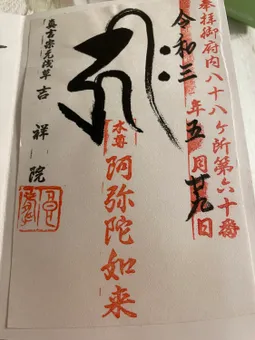 奉拝御府内八十八ヶ所第六十番
令和三年五月廿九日
本尊
阿弥陀如来
真言宗元浅草 吉祥院